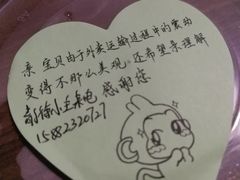 亲 宝贝由于外卖运输过程中的震动
变得不那么美观。还希望亲理解
感谢您
15882320727